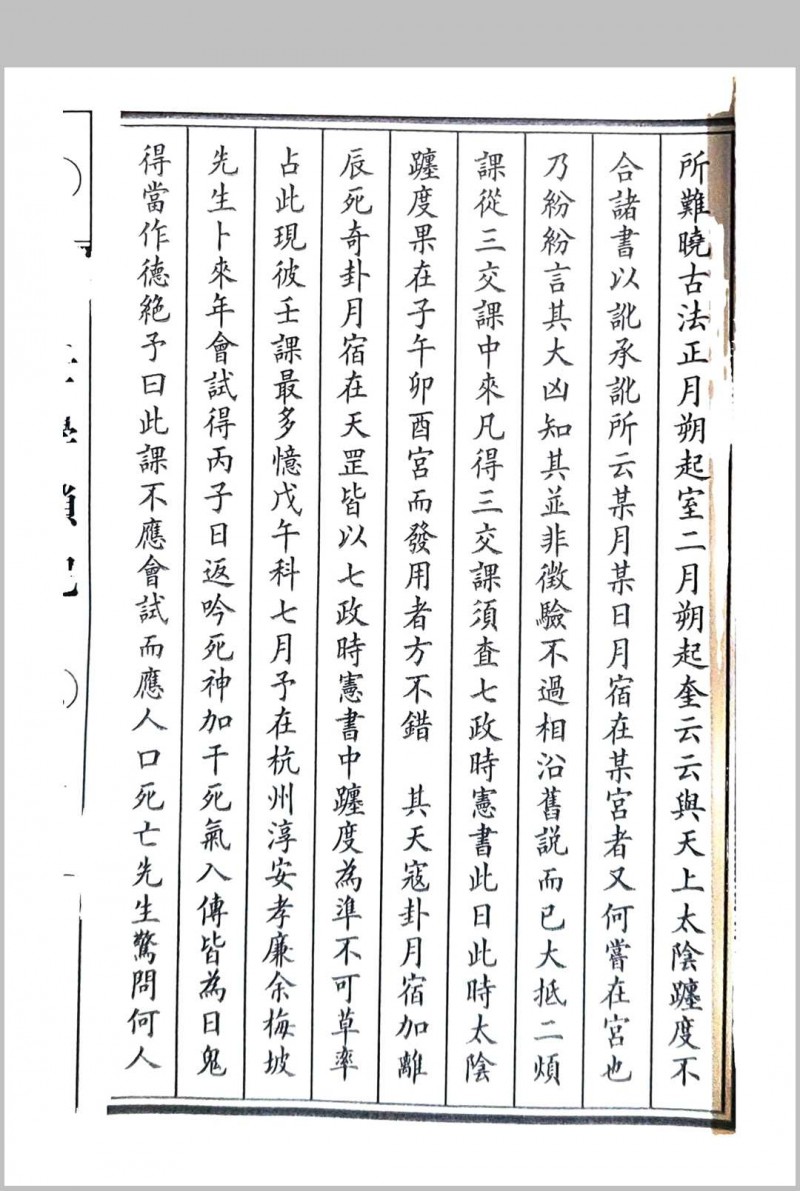 所難曉古法正月朔起室二月朔起奎云云與天上太陰躔度不
合諸書以訛承訛所云某月某日月宿在某宮者又何嘗在宮也
乃紛紛言其大凶知其並非徵驗不過相沿舊說而已大抵二煩
課從三交課中來凡得三交課須查七政時憲書此日此時太陰
躔度果在子午卯酉宮而發用者方不錯　其天寇卦月宿加離
辰死奇卦月宿在天罡皆以七政時憲書中躔度為準不可草率
占此現彼壬課最多憶戊午科七月予在杭州淳安孝廉余梅坡
先生卜來年會試得丙子日返吟死神加干死氣入傳皆為日鬼
得當作德絕予曰此課不應會試而應人口死亡先生驚問何人